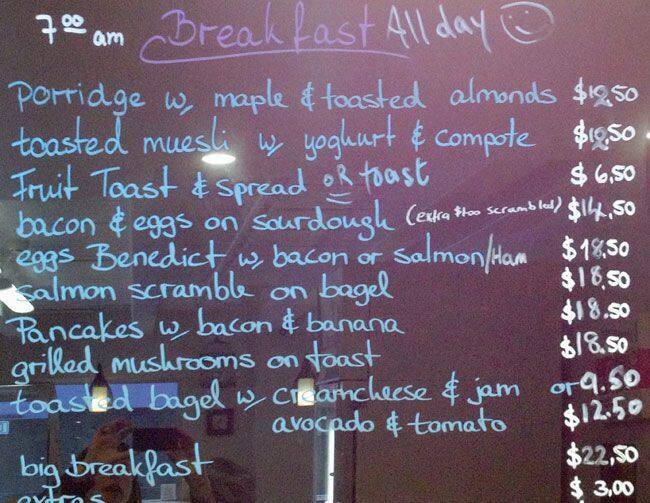 7:00 am Breakfast All day
porridge w/ maple & toasted almonds $12.50
toasted muesli w/ yoghurt & compote $12.50
Fruit Toast & spread OR toast $6.50
bacon & eggs on sourdough (extra $100 scrambled) $14.50
eggs Benedict w/ bacon or salmon/Ham $18.50
salmon scramble on bagel $18.50
Pancakes w/ bacon & banana $18.50
grilled mushrooms on toast $18.50
toasted bagel w/ creamcheese & jam or 9.50
avocado & tomato $12.50
big breakfast $22.50
extras $3.00